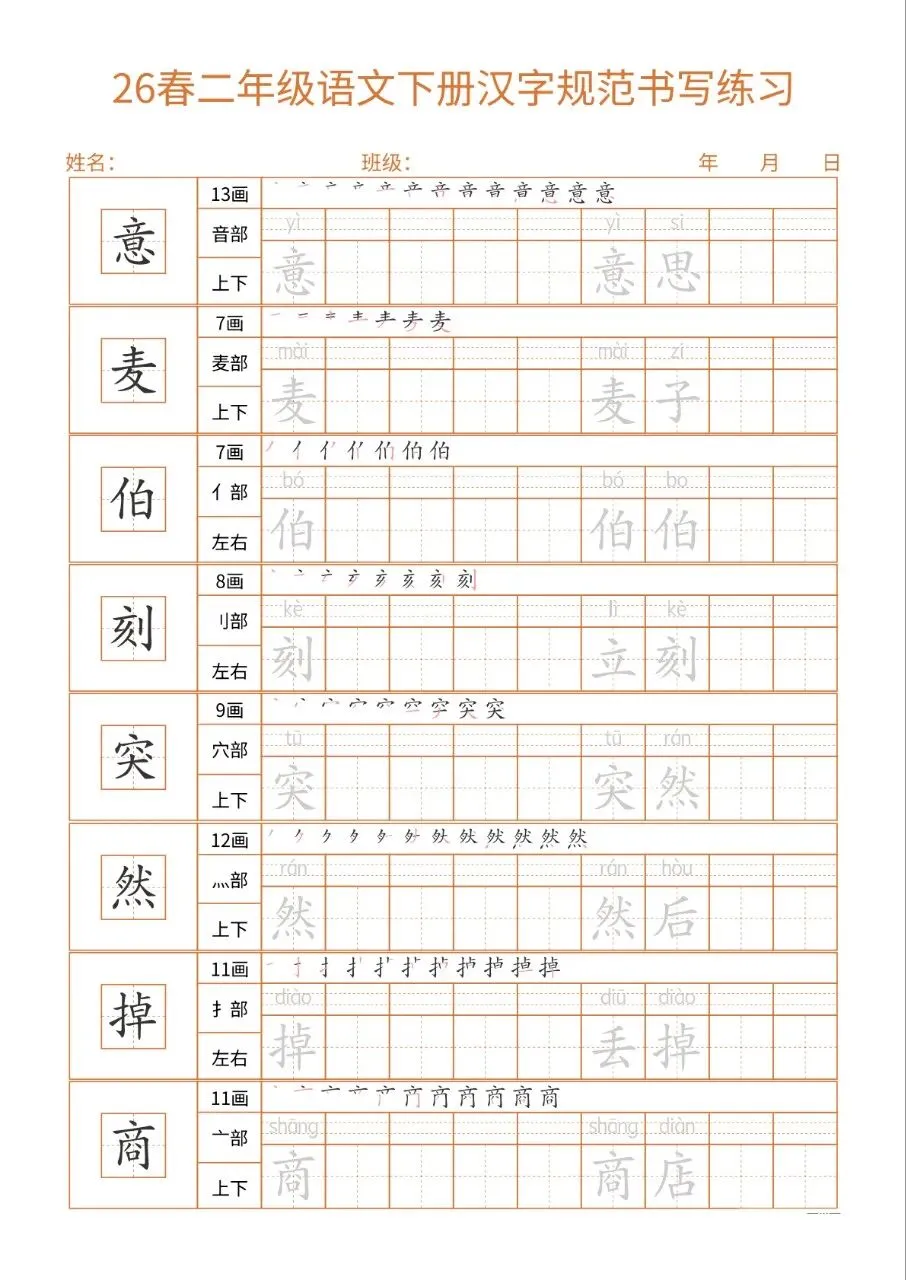 26春二年级语文下册汉字规范书写练习
姓名： 班级： 年 月 日
意 13画
音部 yì yì si
上下 意 意 思
麦 7画
麦部 mài mài zi
上下 麦 麦 子
伯 7画
亻部 bó bó bo
左右 伯 伯 伯
刻 8画
刂部 kè lì kè
左右 刻 立 刻
突 9画
穴部 tū tū rán
上下 突 突 然
然 12画
灬部 rán rán hòu
上下 然 然 后
掉 11画
扌部 diào diū diào
左右 掉 丢 掉
商 11画
亠部 shāng shāng diàn
上下 商 商 店